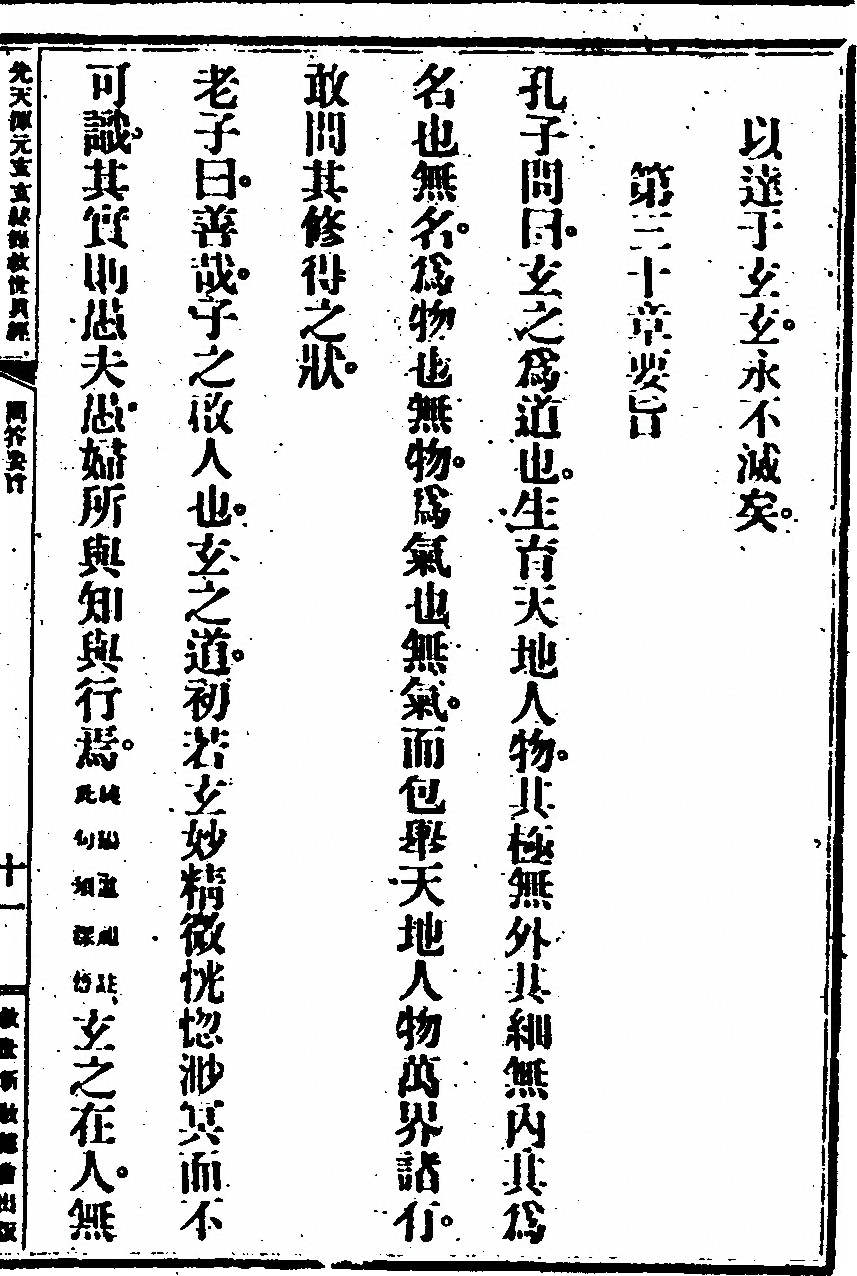 以達于玄玄。永不滅矣。
第三十章要旨
孔子問曰。玄之爲道也。生育天地人物。其極無外其細無內其爲
名也無名。爲物也無物。爲氣也無氣。而包舉天地人物萬界諸行。
敢問其修得之狀。
老子曰。善哉。子之啟人也。玄之道。初若玄妙精微恍惚渺冥而不
可識。其實則愚夫愚婦所與知與行焉。此句須深悟玄之在人。無
先天渾元玄玄秘籙救世眞經
問答要旨
十一
救世新教總會出版